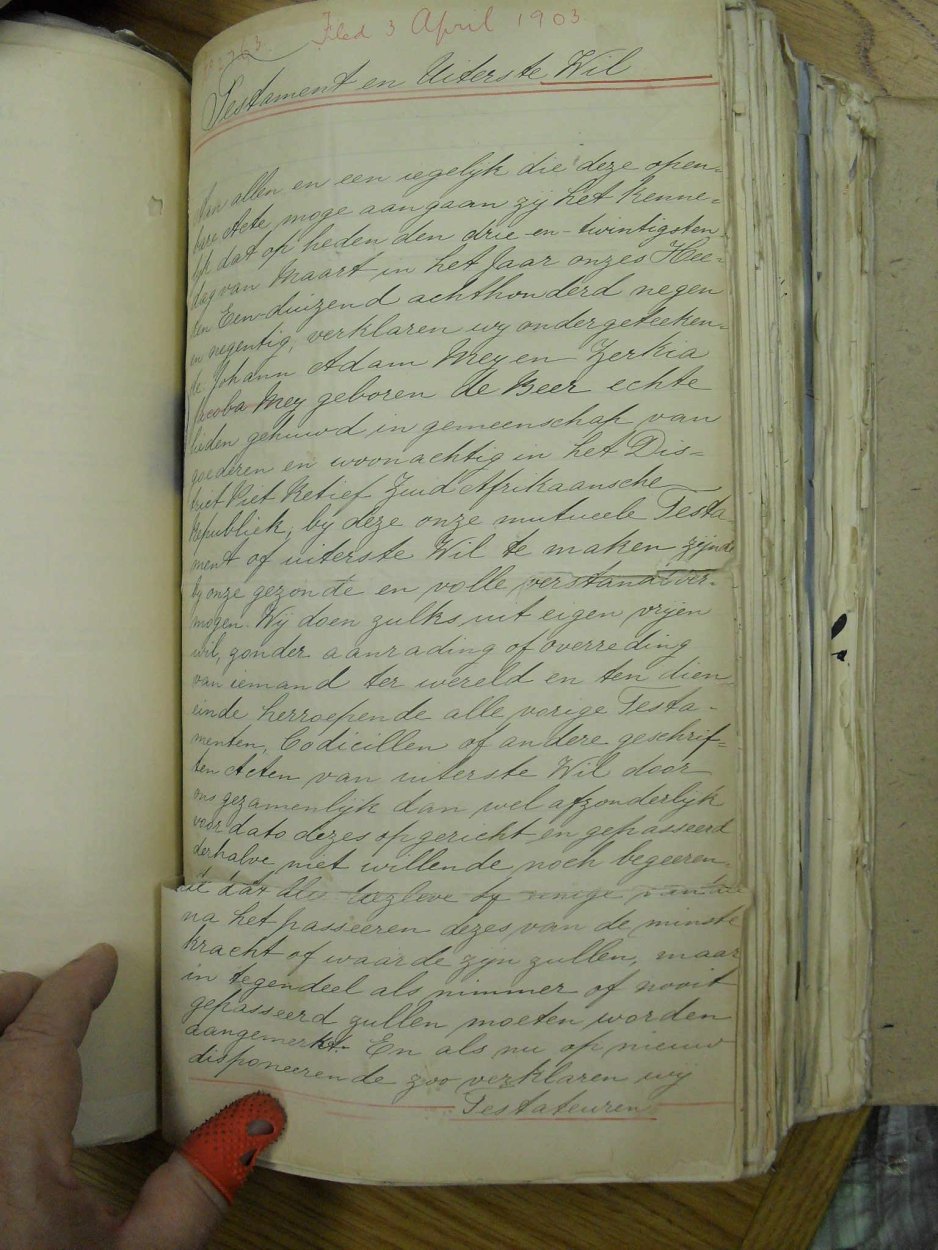 No 763. Filed 3 April 1903
Testament en Uiterste Wil
Aan allen en een iegelijk die deze open-
bare Acte moge aangaan zij het kenne-
lijk dat op heden den drie-en-twintigsten
dag van Maart in het Jaar onzes Hee-
ren Een-duizend achthonderd negen
en negentig, verklaren wy ondergeteeken-
de Johann Adam Mey en Zerkia
Jacoba Mey geboren de Beer echte
lieden gehuwd in gemeenschap van
goederen en woonachtig in het Dis-
trict Piet Retief Zuid Afrikaansche
Republiek, by deze onze mutueele Testa-
ment of uiterste Wil te maken zijnde
by onze gezonde en volle verstand ver-
mogen. Wij doen zulks uit eigen vrijen
wil, zonder aanrading of overreding
van iemand ter wereld en ten dien
einde herroepende alle vorige Testa-
menten, Codicillen of andere geschrif-
ten Acten van uiterste Wil door
ons gezamenlijk dan wel afzonderlijk
voor dato dezes opgericht en gepasseerd
derhalve niet willende noch begeeren-
de dat die by eenige van
na het passeeren dezes van de minste
kracht of waarde zijn zullen, maar
in tegendeel als nimmer of nooit
gepasseerd zullen moeten worden
aangemerkt. En als nu op nieuw
disponeerende zoo verklaren wij
Testateuren